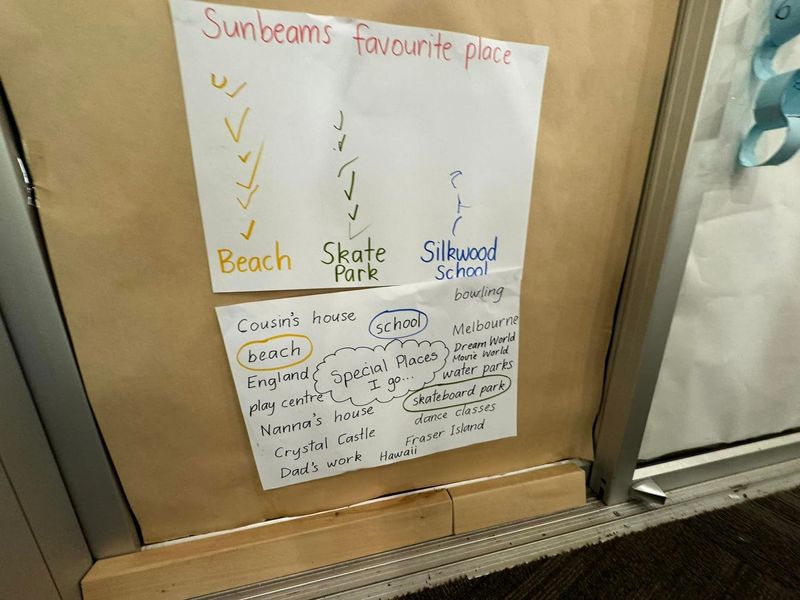 Sunbeams favourite place
Beach
Skate Park
Silkwood School
bowling
Cousin's house
school
Melbourne
beach
Dream World
Movie World
Special Places
I go...
England
water parks
play centre
skateboard park
Nanna's house
dance classes
Crystal Castle
Fraser Island
Dad's work
Hawaii